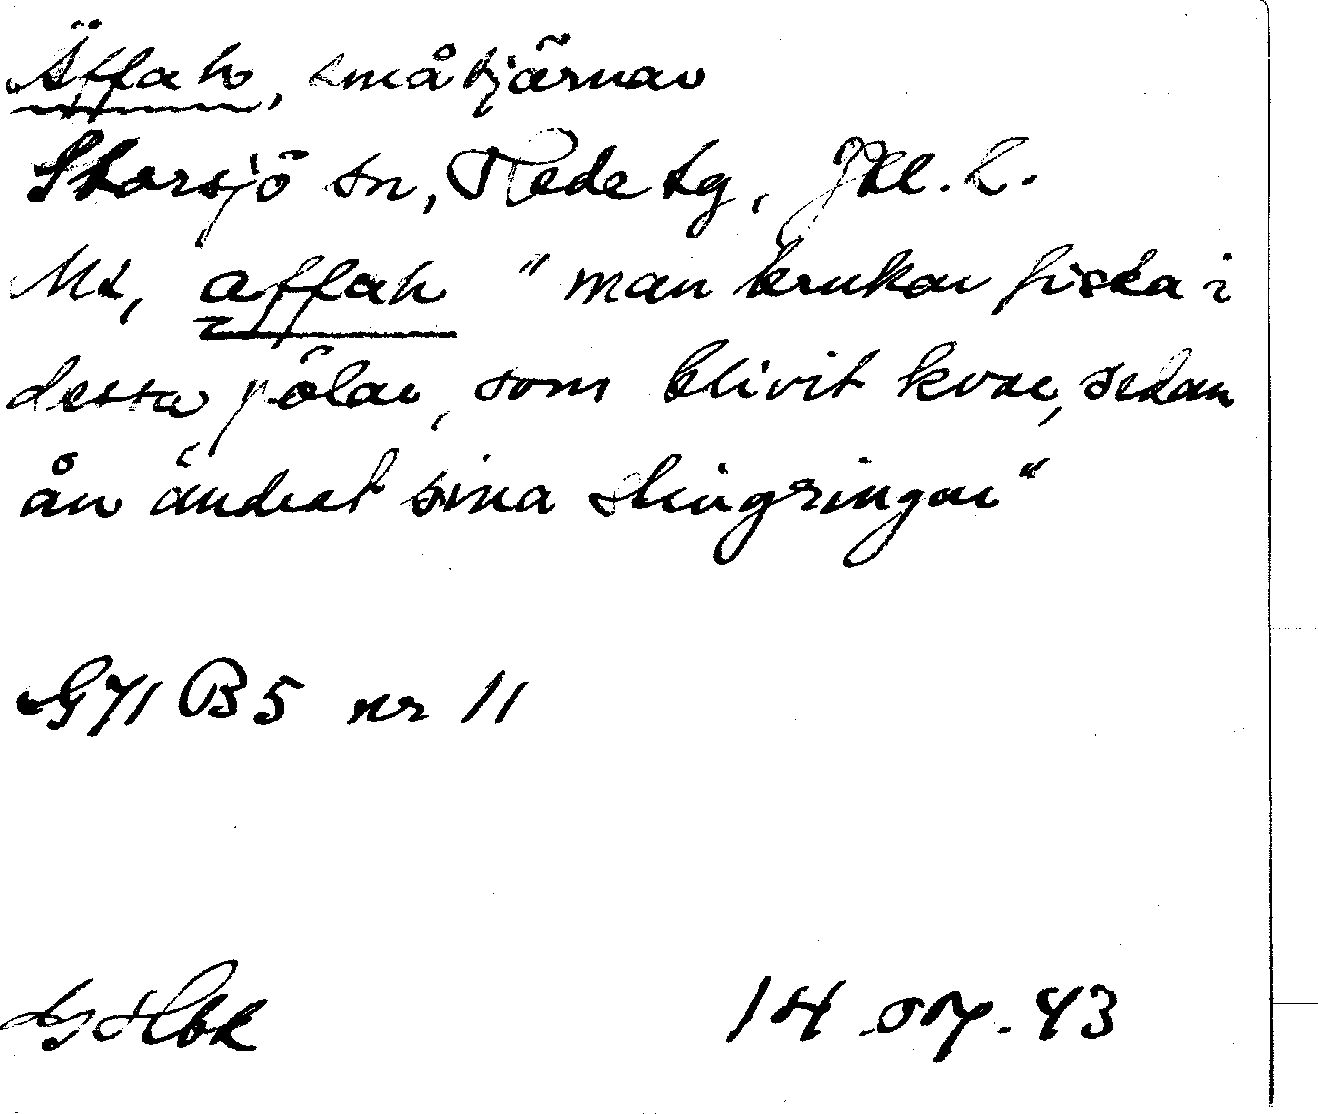 Äffah, småtjärnar
Storsjö sn, Hede tg, Jtl. l.
Ms, affah "man brukar fiska i
dessa pölar, som blivit kvar, sedan
ån ändrat sina slingringar"
G71 B5 nr 11
14 43